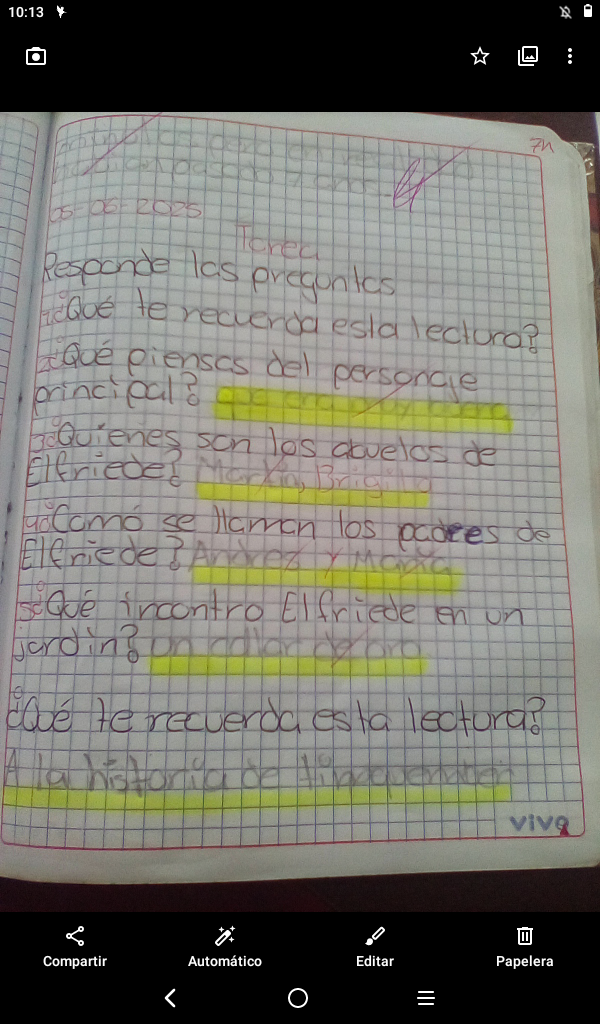 10:13
74
05-06-2025
Tarea
Responde las preguntas
1¿Qué te recuerda esta lectura?
2¿Qué piensas del personaje
principal? que era muy buena
3¿Quienes son los abuelos de
Elfriede? Martin, Brigitta
4¿Comó se llaman los padres de
Elfriede? Andres y María
5¿Qué incontro Elfriede en un
jardin? Un collar de oro
¿Qué te recuerda esta lectura?
A la historia de
viva
Compartir
Automático
Editar
Papelera